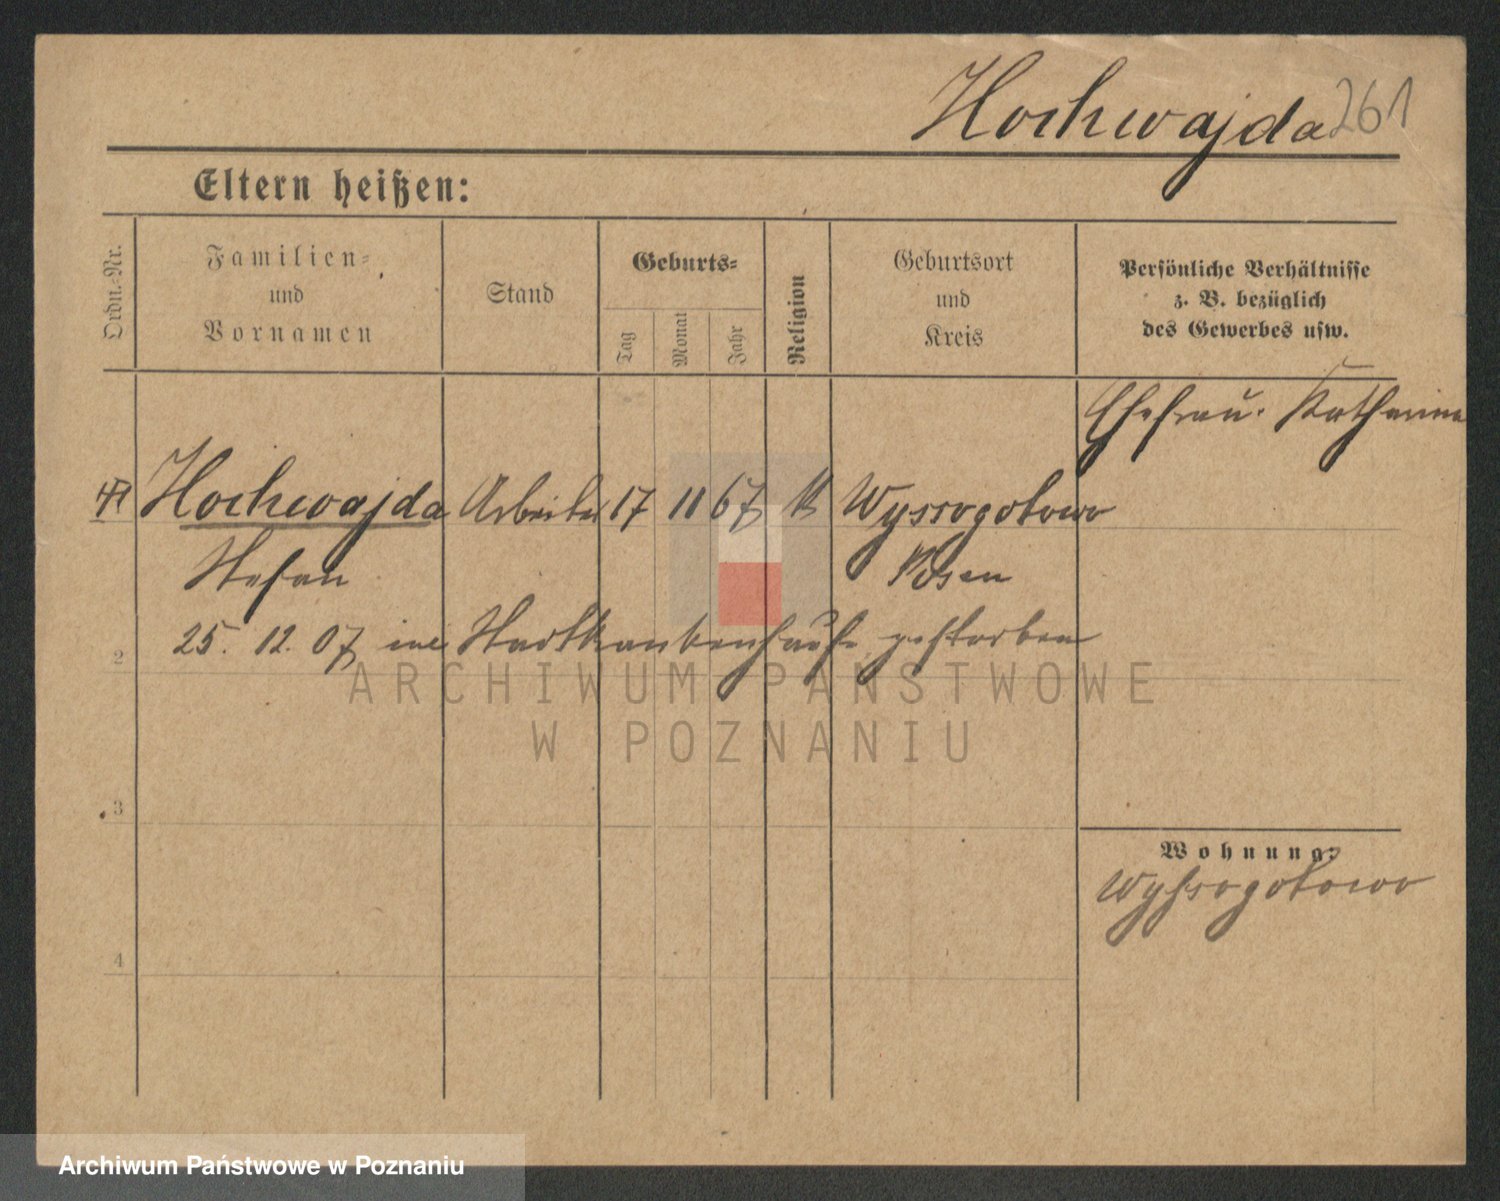 Hochwajda 261
Eltern heißen:
Ordn.-Nr.
Familien-
und
Vornamen
Stand
Geburts-
Tag
Monat
Jahr
Religion
Geburtsort
und
Kreis
Persönliche Verhältnisse
z. B. bezüglich
des Gewerbes usw.
Ehefrau. Katharina
Hochwajda Arbeiter 17 11 67 k Wyssogotowo
Stefan Posen
25. 12. 07 im Stadtkrankenhause gestorben
2
ARCHIWUM PAŃSTWOWE
W POZNANIU
3
Wohnung:
Wyssogotowo
4
Archiwum Państwowe w Poznaniu